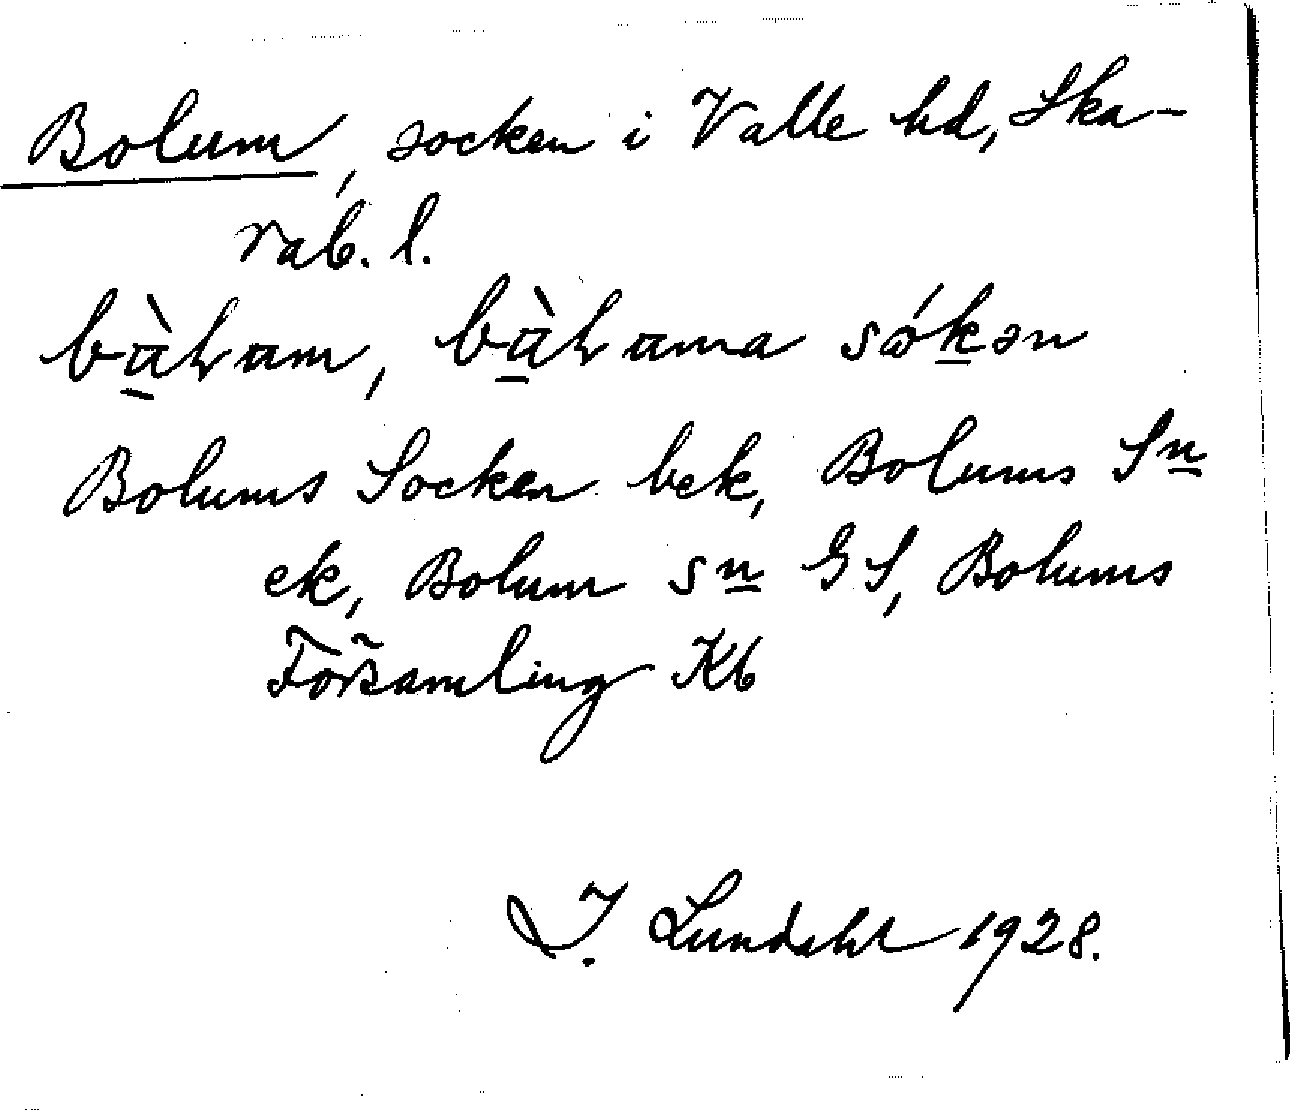 Bolum, socken i Valle hd, Ska-
rab. l.
Bolums Socken bek, Bolums Sn
ek, Bolum sn GS, Bolums
Församling Kb
I. Lundahl 1928.